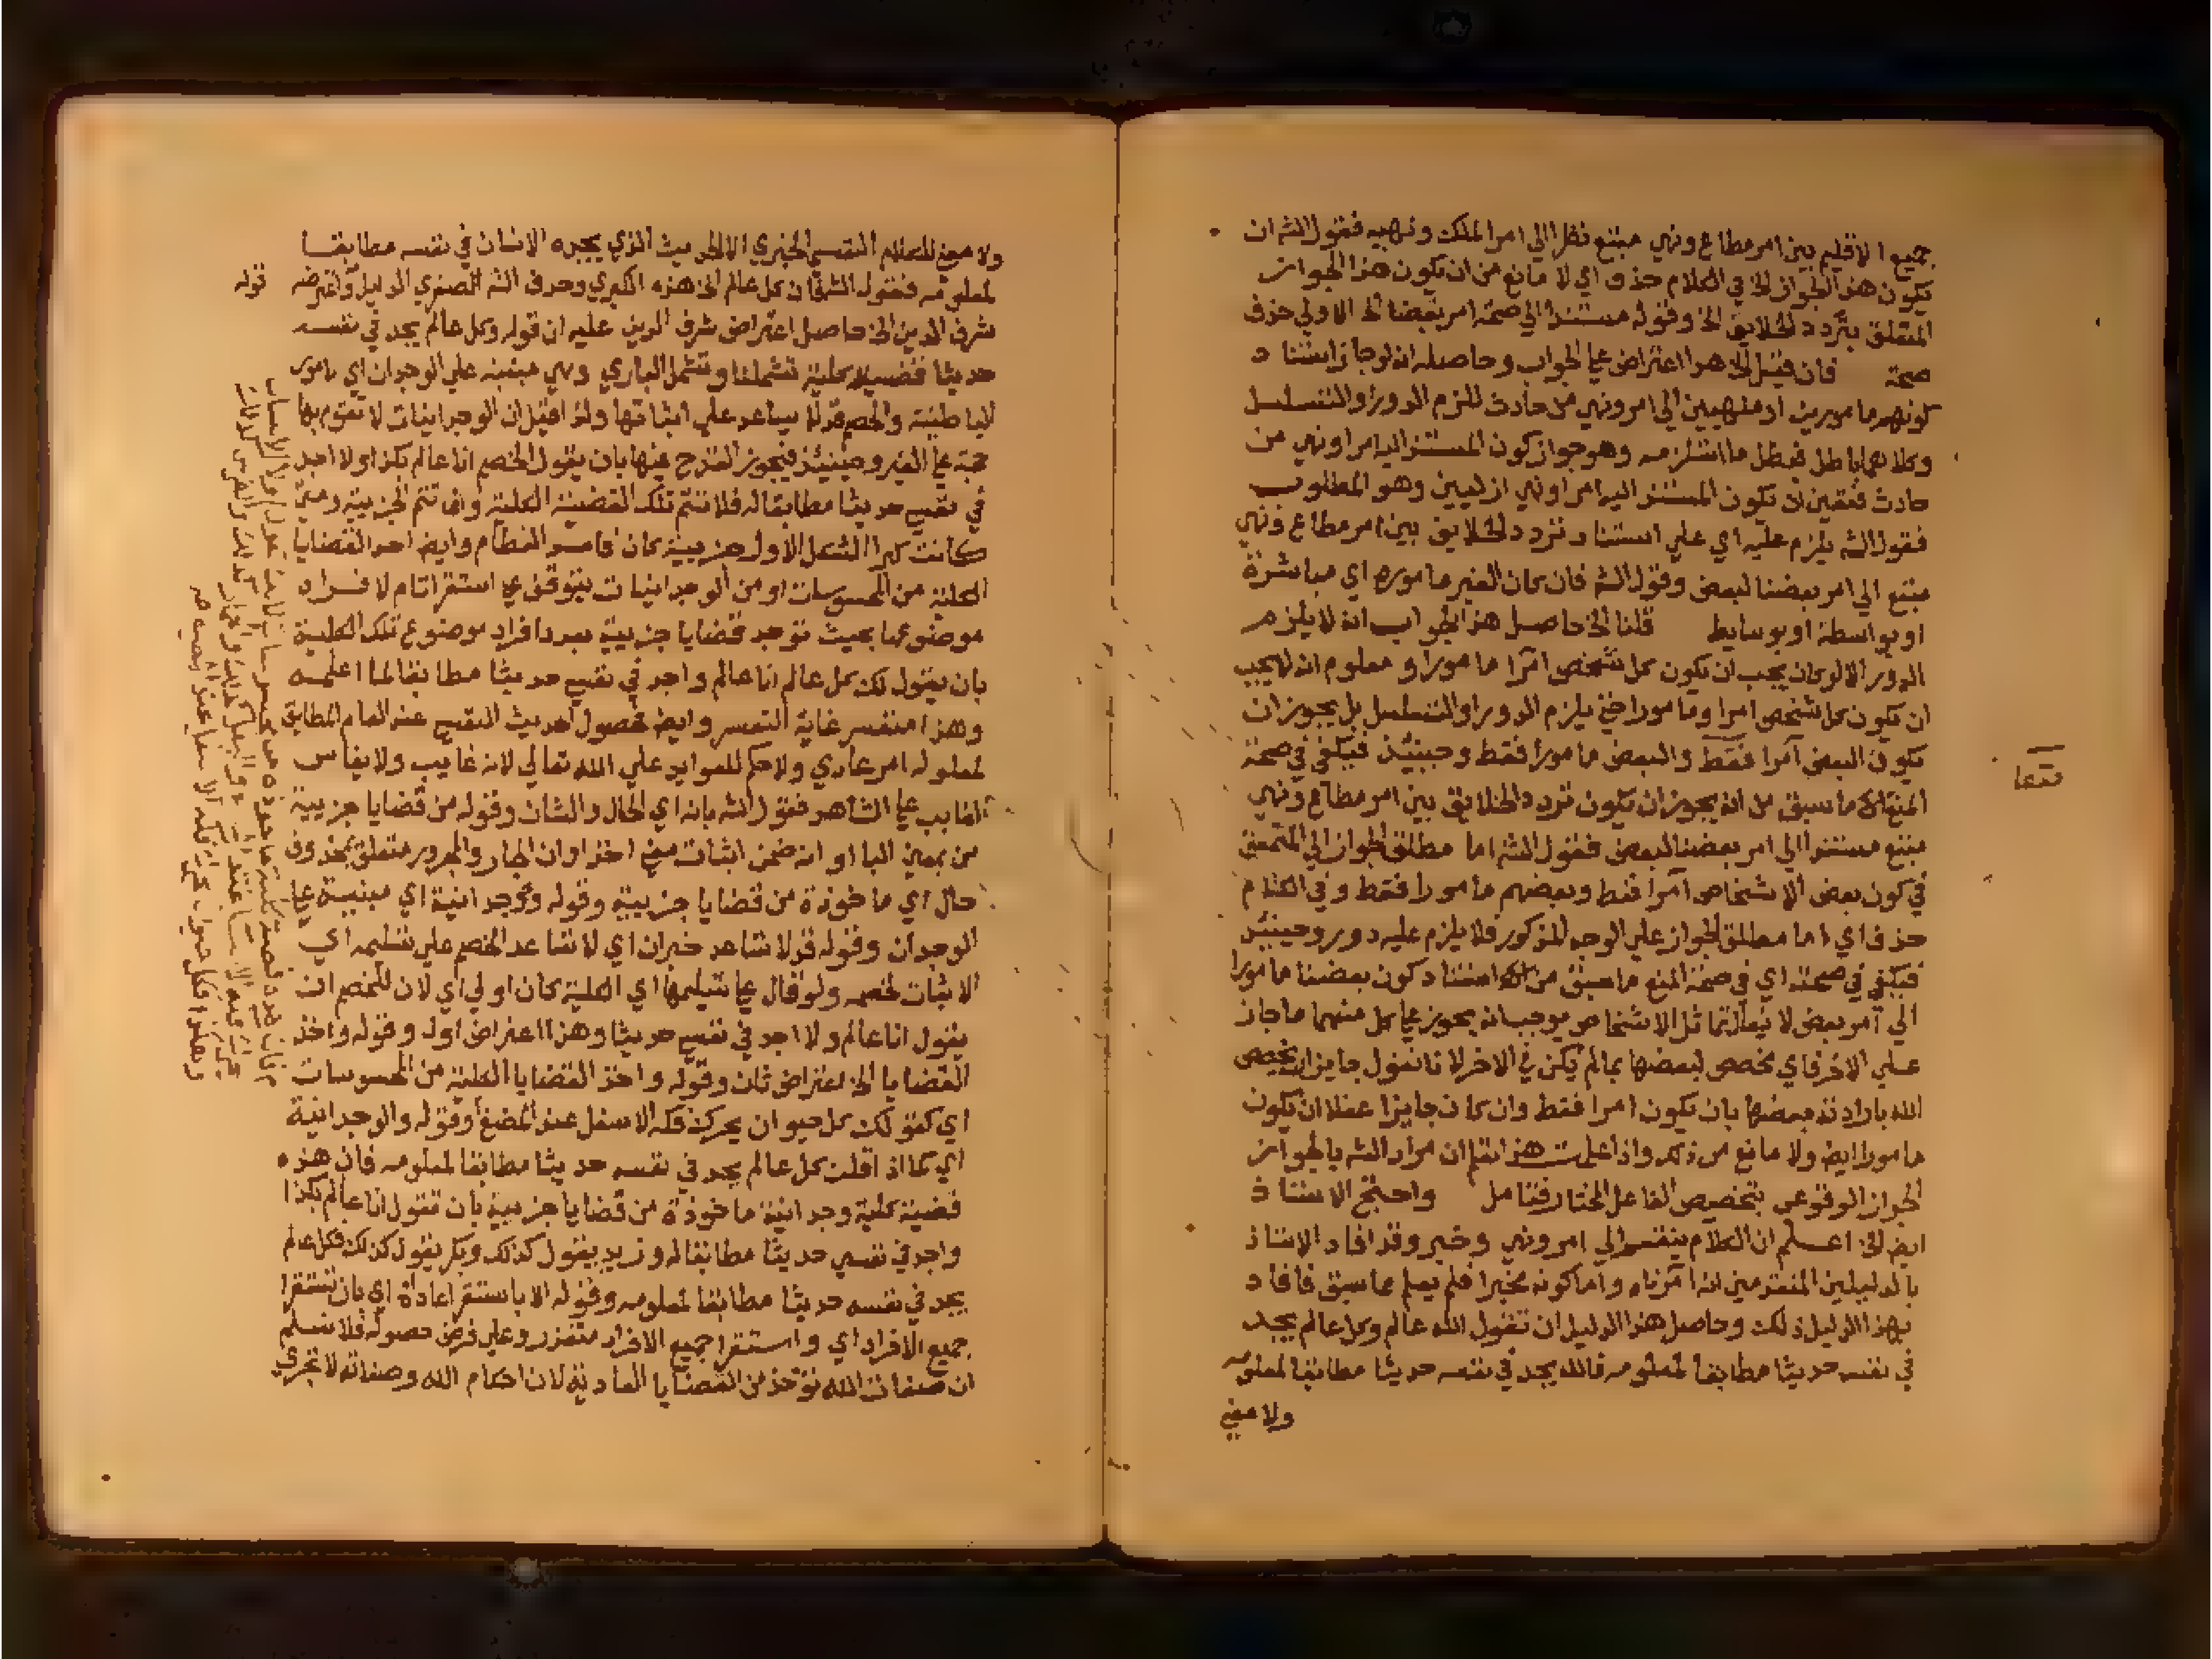 جميع الاقليم بين امر مطاع ونهي متبع نظرا الي امر الملك ونهيه فقول الشه ان
يكون هذا الجواز الخ في الكلام حذف اي لا مانع من ان يكون هذا الجواز
المتعلق بتردد الخلايق الخ وقوله مستندا الي صحة امر بعضنا الخ الاولي حذف
صحة فان قيل الخ هو اعتراض علي الجواب وحاصله انه لو جاز استناد
كونهم مامورين او منهيين الي امر ونهي من حادث للزم الدور او التسلسل
وكلاهما باطل فبطل ما استلزمه وهو جواز كون المستند اليه امر او نهي من
حادث فتعين ان يكون المستند اليه امر او نهي ازليين وهو المطلوب
فقول الشه يلزم عليه اي علي استناد تردد الخلايق بين امر مطاع ونهي
متبع الي امر بعضنا لبعض وقول الشه فان كان الغير ماموره اي مباشرة
او بواسطة او بوسايط قلنا الخ حاصل هذا الجواب انه لا يلزم
الدور الا لو كان يجب ان يكون كل شخص امرا مامورا ومعلوم انه لا يجب
ان يكون كل شخص امرا ومامورا حتي يلزم الدور او التسلسل بل يجوز ان
يكون البعض آمرا فقط والبعض مامورا فقط وحينيذ فيكفي في صحة
المنع ما سبق من انه يجوز ان يكون تردد الخلايق بين امر مطاع ونهي
متبع مستندا الي امر بعضنا لبعض فقول الشه اما مطلق الجواز اي المتحقق
في كون بعض الاشخاص آمرا فقط وبعضهم مامورا فقط وفي الكلام
حذف اي اما مطلق الجواز علي الوجه المذكور فلا يلزم عليه دور وحينيذ
فيكفي في صحته اي في صحة المنع ما سبق من استناد كون بعضنا مامورا
الي آمر بعض لا يقال تماثل الاشخاص يوجب انه يجوز علي كل منهما ما جاز
علي الاخر فاي مخصص لبعضها بما لم يكن في الاخر لانا نقول جايز ان يخصص
الله بارادته بعضها بان يكون امرا فقط وان كان جايزا عقلا ان يكون
مامورا ايض ولا مانع من ذلك واذا علمت هذا تعلم ان مراد الشه بالجواز
الجواز الوقوعي بتخصيص الفاعل المختار فتامل واحتج الاستاذ
ايض الخ اعلم ان الكلام ينقسم الي امر ونهي وخبر وقد افاد الاستاذ
بالدليلين المتقدمين انه آمر ناه واما كونه مخبرا فلم يعلم مما سبق فافاد
بهذا الدليل ذلك وحاصل هذا الدليل ان تقول الله عالم وكل عالم يجد
في نفسه حديثا مطابقا لمعلومه فالله يجد في نفسه حديثا مطابقا لمعلومه
ولا معني
ولا معني للكلام النفسي الخبري الا الحديث الذي يجده الانسان في نفسه مطابقا
لمعلومه فقول الشه ان كل عالم الخ هذه الكبري وحذف الشه الصغري الدليل واعترضه
قوله
شرف الدين الخ حاصل اعتراض شرف الدين عليه ان قوله وكل عالم يجد في نفسه
حديثا قضية كلية تشملنا وتشمل الباري وهي مبنية علي الوجدان اي الامور
الباطنية والخصم قد لا يساعد علي اثباتها ولذا قيل ان الوجدانيات لا تقوم بها
حجة علي الغير وحينيذ فيجوز القدح فيها بان يقول الخصم انا عالم بكذا ولا اجد
في نفسي حديثا مطابقا له فلا تتم تلك القضية الكلية وانما تتم الجزيية ومتي
كانت كبرا الشكل الاول جزيية كان فاسد النظام وايض اخذ القضايا
الكلية من المحسوسات او من الوجدانيات يتوقف علي استقرا تام لافراد
موضوعها بحيث توجد قضايا جزيية بعدد افراد موضوع تلك الكلية
بان يقول لك كل عالم انا عالم واجد في نفسي حديثا مطابقا لما اعلمه
وهذا متعسر غاية التعسر وايض حصول احديث النفس عند العالم المطابق
لمعلومه امر عادي ولا حكم للعوايد علي الله تعالي لانه غايب ولا يقاس
الغايب علي الشاهد فقول الشه بانه اي الحال والشان وقوله من قضايا جزيية
من بمعني البا او انه ضمن اثبات معني اخذ او ان الجار والمجرور متعلق بمحذوف
حال اي ماخوذة من قضايا جزيية وقوله ووجدانية اي مبنية علي
الوجدان وقوله قد لا يساعد خبر ان اي لا يساعد الخصم علي تسليمه اي
الاثبات لخصمه ولو قال علي تسليمها اي الكلية كان اولي اي لان للخصم ان
يقول انا عالم ولا اجد في نفسي حديثا وهذا اعتراض اول وقوله واخذ
القضايا الخ اعتراض ثان وقوله واخذ القضايا الكلية من المحسوسات
اي كقولك كل حيوان يحرك فكه الاسفل عند المضغ وقوله والوجدانية
اي كما اذا قلت كل عالم يجد في نفسه حديثا مطابقا لمعلومه فان هذه
قضية كلية وجدانية ماخوذة من قضايا جزيية بان تقول انا عالم بكذا
واجد في نفسي حديثا مطابقا له وزيد يقول كذلك وبكر يقول كذلك فكل عالم
يجد في نفسه حديثا مطابقا لمعلومه وقوله الا باستقرا عادة اي بان تستقرا
جميع الافراد اي واستقرا جميع الافراد متعذر وعلي فرض حصوله فلا نسلم
ان صفات الله تؤخذ من القضايا العادية لان احكام الله وصفاته لا تجري